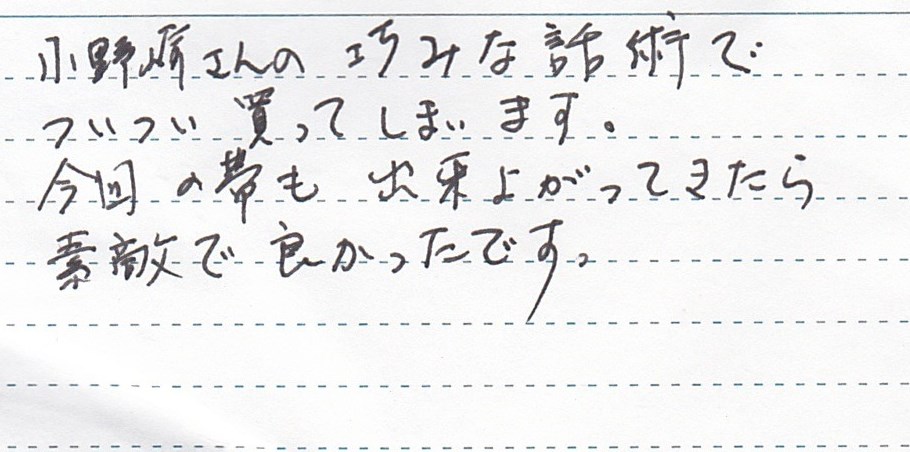 小野崎さんの 巧みな話術で
ついつい買ってしまいます。
今回の帯も 出来よがってきたら
素敵で良かったです。